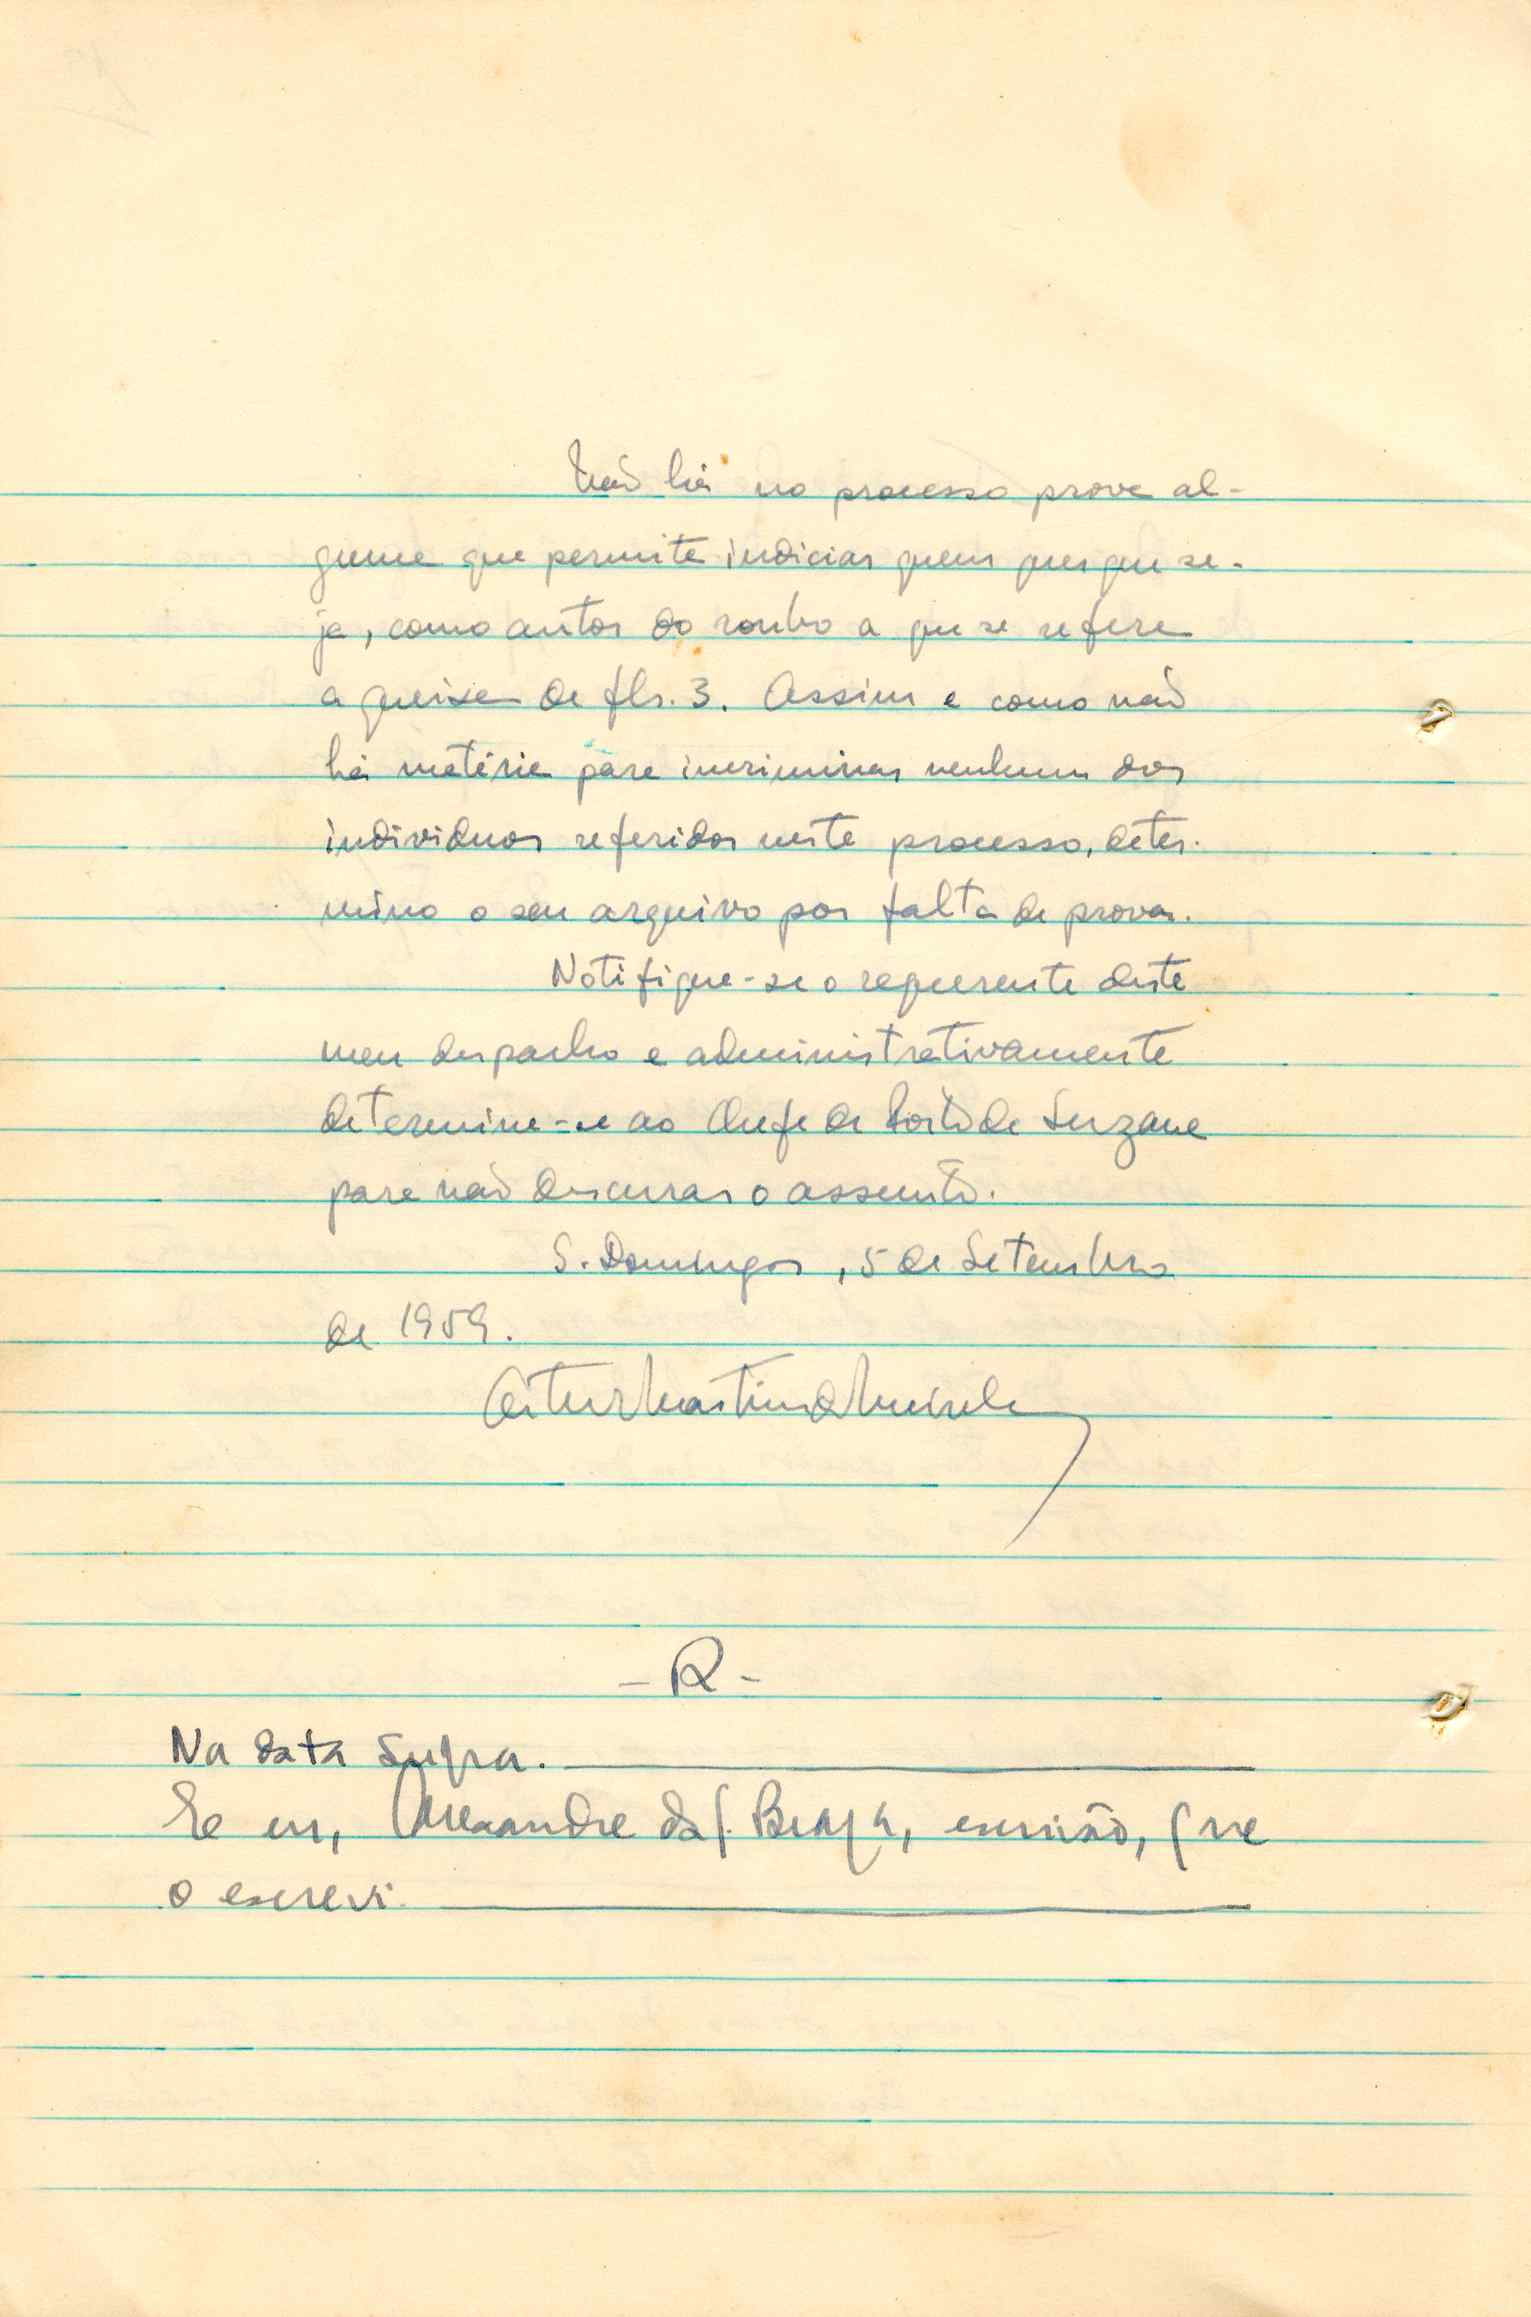 Não há no processo prova al-
guma que permita indiciar quem quer que se-
ja, como autor do roubo a que se refere
a queixa de fls. 3. Assim e como não
há matéria para incriminar nenhum dos
individuos referidos neste processo, deter-
mino o seu arquivo por falta de provas.
Notifique-se o requerente deste
meu despacho e administrativamente
determine-se ao Chefe de Posto de Suzana
para não descurar o assunto.
S. Domingos, 5 de Setembro
de 1959.
Artur Martins
- R -
Na data supra.
E eu, Alexandre da S. Braga, escrivão, que
o escrevi.